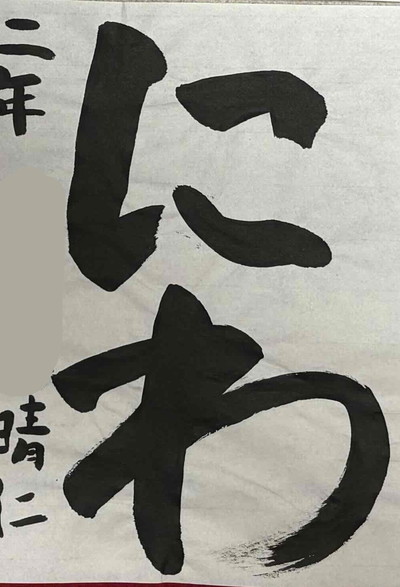 にわ
二年
晴仁